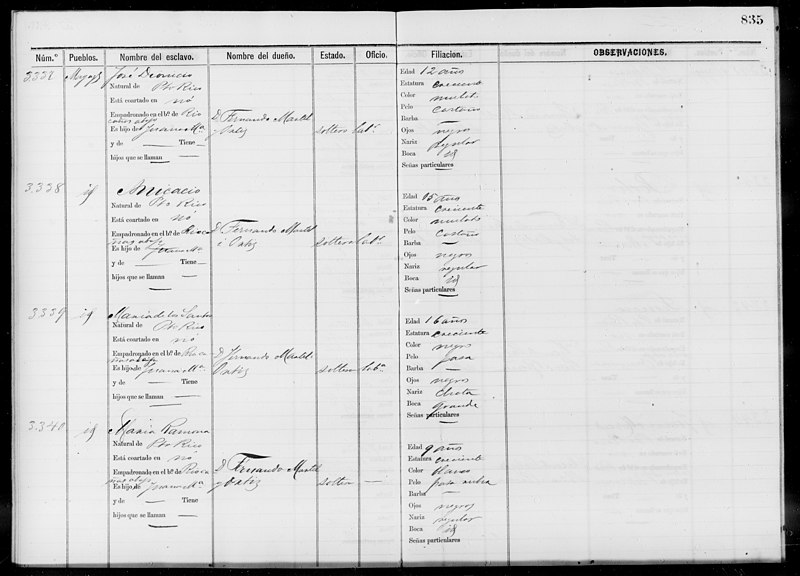 835
Núm.º Pueblos. Nombre del esclavo. Nombre del dueño. Estado. Oficio. Filiacion. OBSERVACIONES.
José Dionicio
Natural de Pto Rico
Está coartado en nó
Empadronado en el bº de Rio
cañas abajo
Es hijo de Juana Mª
y de — Tiene —
hijos que se llaman —
D. Fernando Martel
y Ortiz
soltero Labº
Edad 12 años
Estatura creciente
Color mulato
Pelo castaño
Barba —
Ojos negros
Nariz regular
Boca id
Señas particulares —
3.338 id Anicacio
Natural de Pto Rico
Está coartado en nó
Empadronado en el bº de Rioca
ñas abajo
Es hijo de Juana Mª
y de — Tiene —
hijos que se llaman —
D. Fernando Martel
é Ortiz
soltero Labº
Edad 15 años
Estatura creciente
Color mulato
Pelo castaño
Barba —
Ojos negros
Nariz regular
Boca id
Señas particulares —
3.339 id María de los Santos
Natural de Pto Rico
Está coartado en nó
Empadronado en el bº de Rioca
ñas abajo
Es hijo de Juana Mª
y de — Tiene
hijos que se llaman —
D. Fernando Martel
Ortiz
soltera Labª
Edad 16 años
Estatura creciente
Color negro
Pelo pasa
Barba —
Ojos negros
Nariz chata
Boca grande
Señas particulares —
3.340 id María Ramona
Natural de Pto Rico
Está coartado en nó
Empadronado en el bº de Rioca
ñas abajo
Es hijo de Juana Mª
y de — Tiene
hijos que se llaman —
D. Fernando Martel
y Ortiz
soltera —
Edad 9 años
Estatura creciente
Color claro
Pelo pasa rubia
Barba —
Ojos negros
Nariz regular
Boca id
Señas particulares